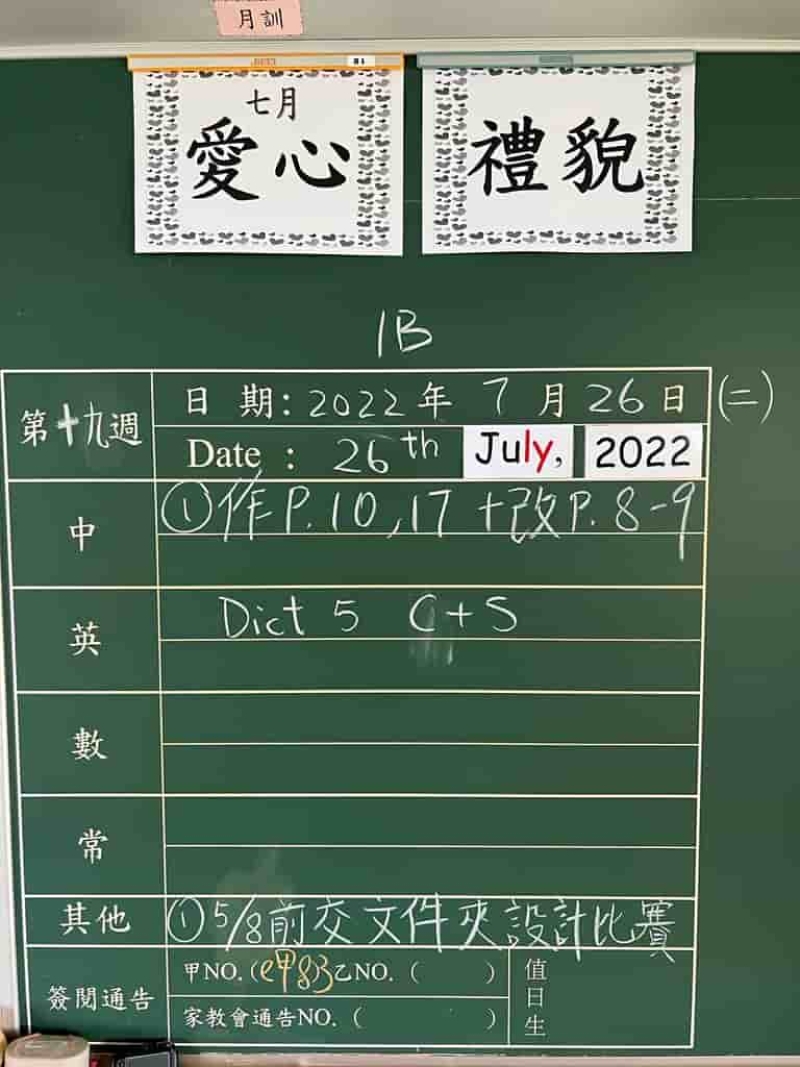 月訓
七月
愛心
禮貌
1B
第十九週
日期：2022年7月26日(二)
Date : 26th July, 2022
中
①作P.10,17+改P.8-9
英
Dict 5 C+S
數
常
其他
①5/8前交文件夾設計比賽
簽閱通告
甲NO.(e甲83)乙NO.( )
家教會通告NO.( )
值日生